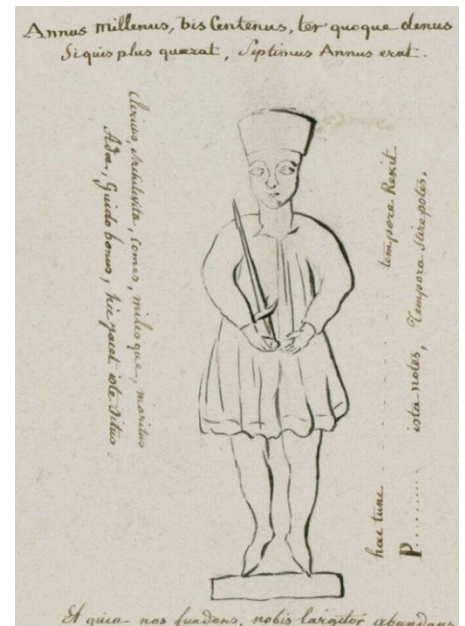 Annus millenus, bis Centenus, ter quoque denus
Siquis plus quærat, Septimus Annus erat.
Clericus, Archilevita, Comes, milesque, maritus
Adæ, Guido bonus, hic jacet iste situs.
hac tunc . . . . . . . . . tempora Rexit
P......... ista notes, Tempora Scire potes,
Et quia nos fundans, nobis largitor abundans